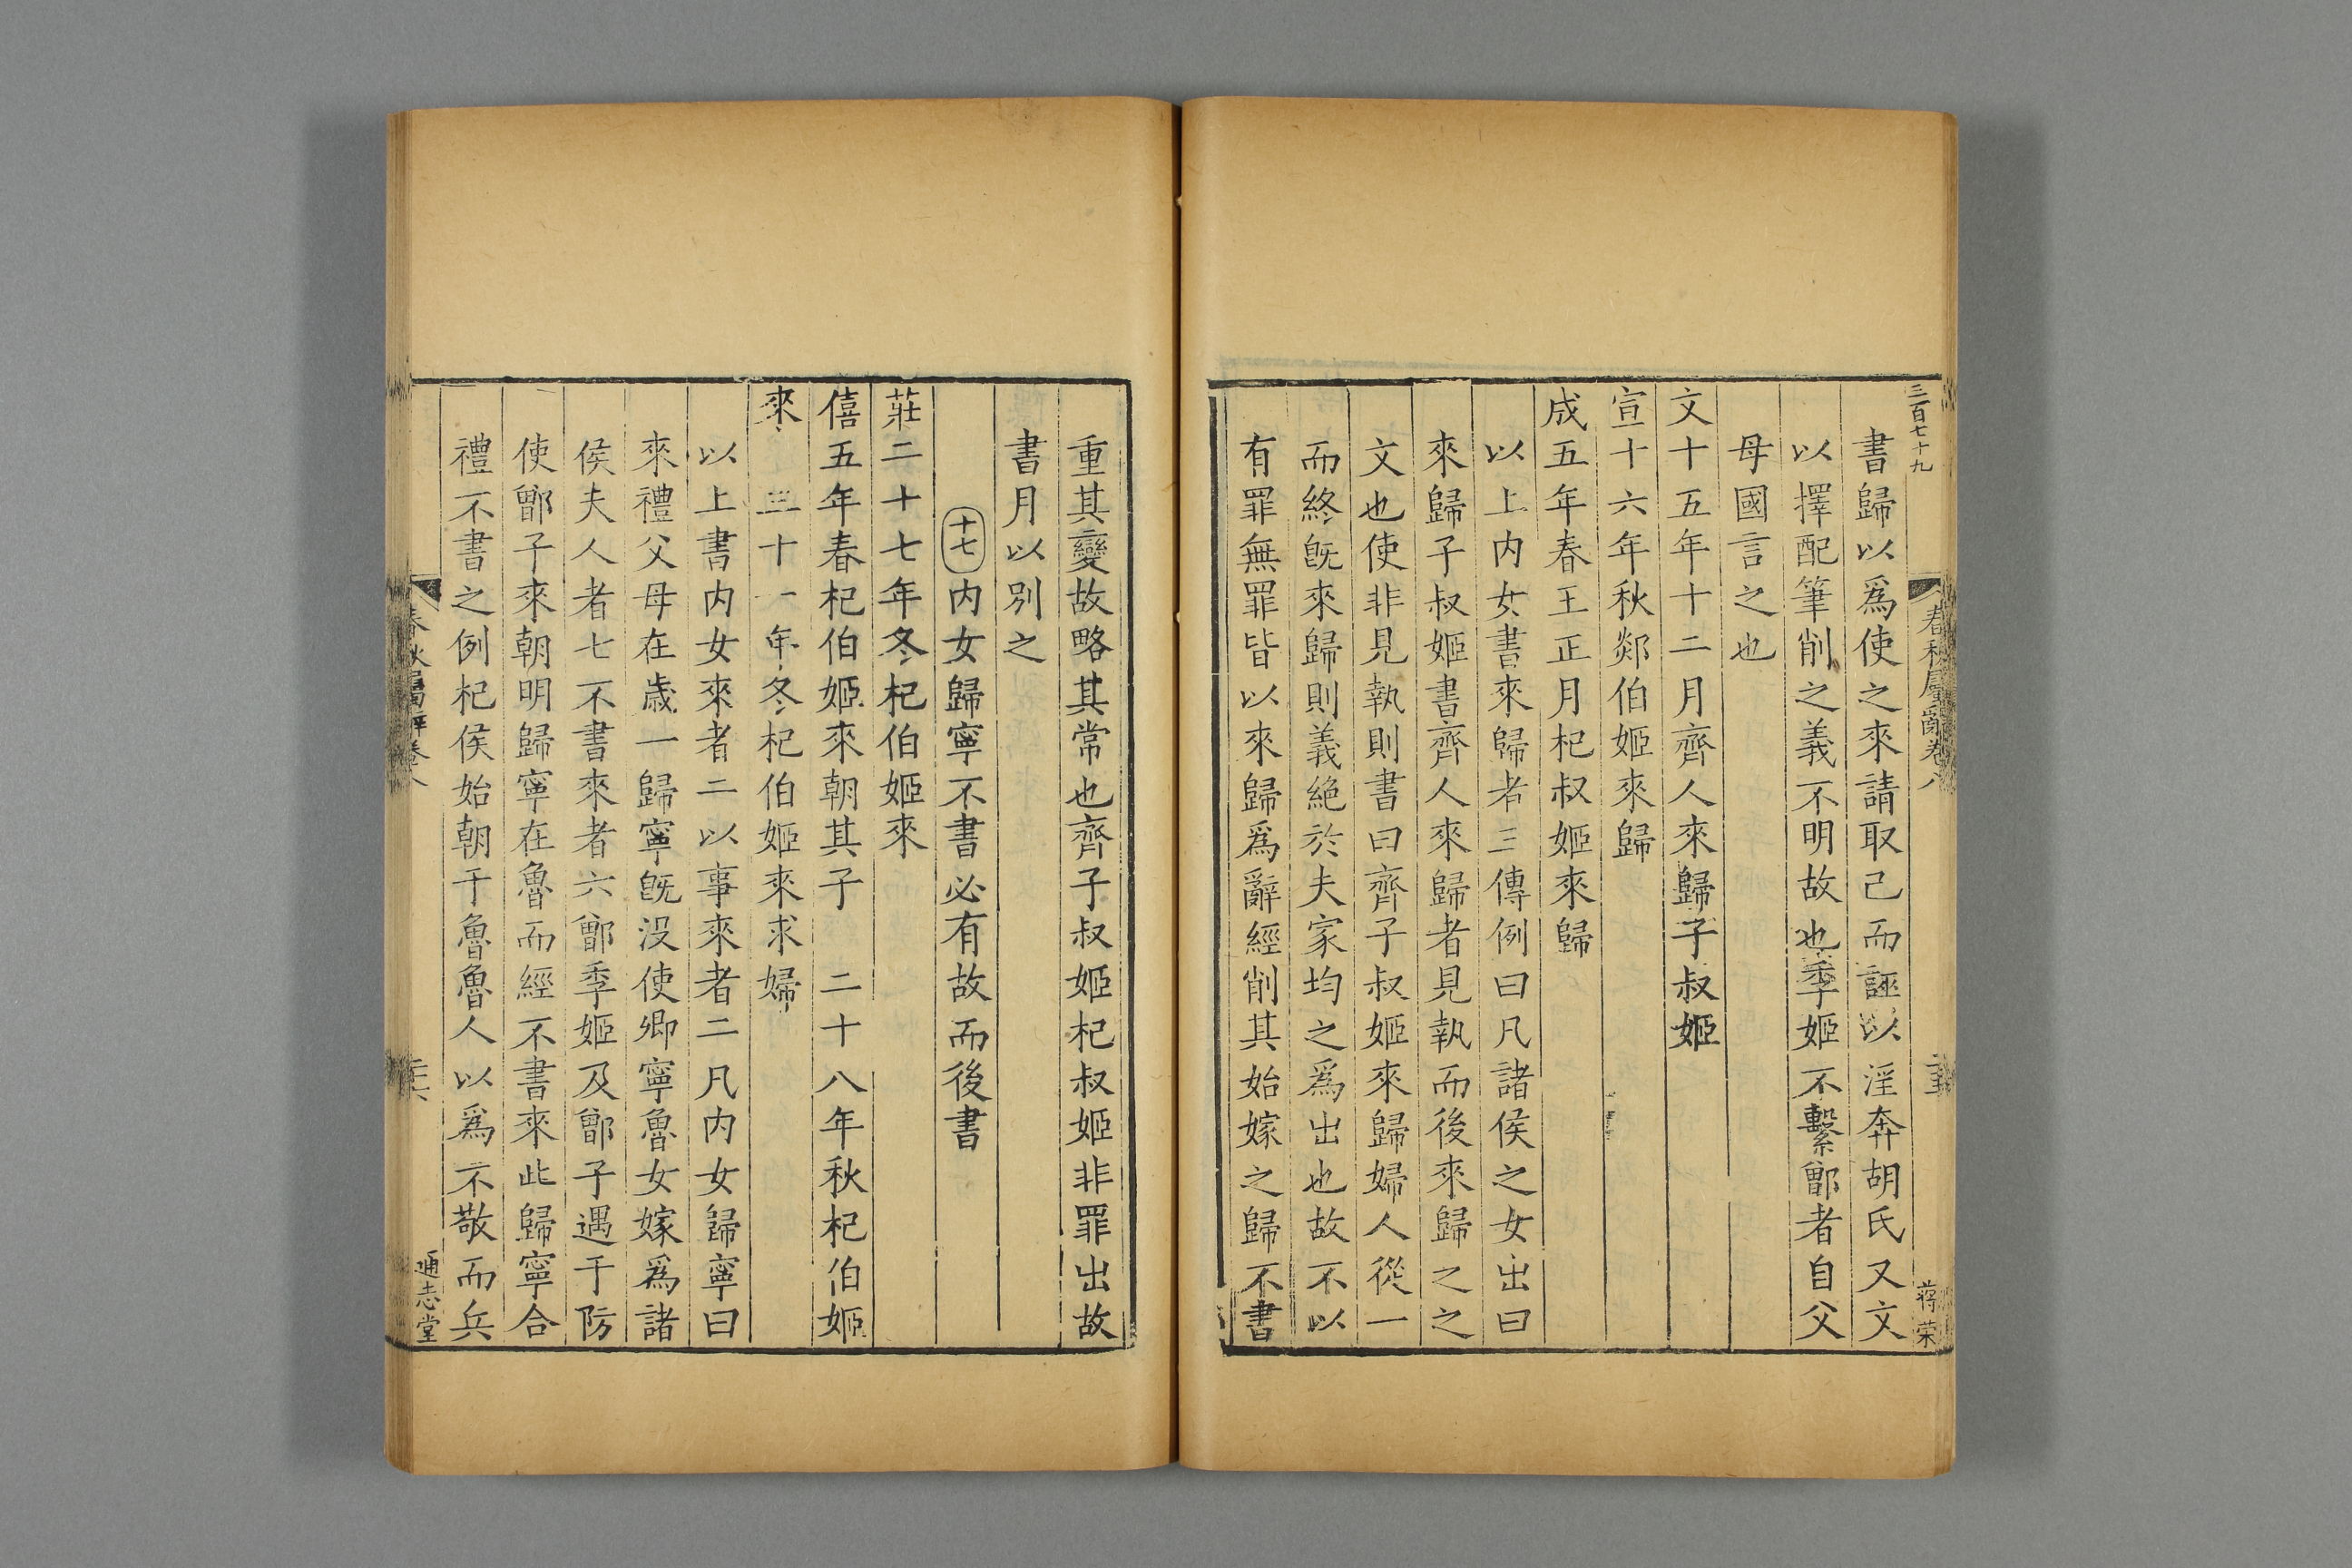 三百七十九
春秋屬辭卷八
蔣荣
書歸以爲使之來請取己而誣以淫奔胡氏又文
以擇配筆削之義不明故也季姬不繫鄫者自父
母國言之也
文十五年十二月齊人來歸子叔姬
宣十六年秋郯伯姬來歸
成五年春王正月杞叔姬來歸
以上内女書來歸者三傳例曰凡諸侯之女出曰
來歸子叔姬書齊人來歸者見執而後來歸之之
文也使非見執則書曰齊子叔姬來歸婦人從一
而終旣來歸則義絶於夫家均之爲出也故不以
有罪無罪皆以來歸爲辭經削其始嫁之歸不書
重其變故略其常也齊子叔姬杞叔姬非罪出故
書月以別之
十七内女歸寧不書必有故而後書
莊二十七年冬杞伯姬來
僖五年春杞伯姬來朝其子　二十八年秋杞伯姬
來　三十一年冬杞伯姬來求婦
以上書内女來者二以事來者二凡内女歸寧曰
來禮父母在歲一歸寧旣没使卿寧魯女嫁爲諸
侯夫人者七不書來者六鄫季姬及鄫子遇于防
使鄫子來朝明歸寧在魯而經不書來此歸寧合
禮不書之例杞侯始朝于魯魯人以爲不敬而兵
春秋屬辭卷八
通志堂